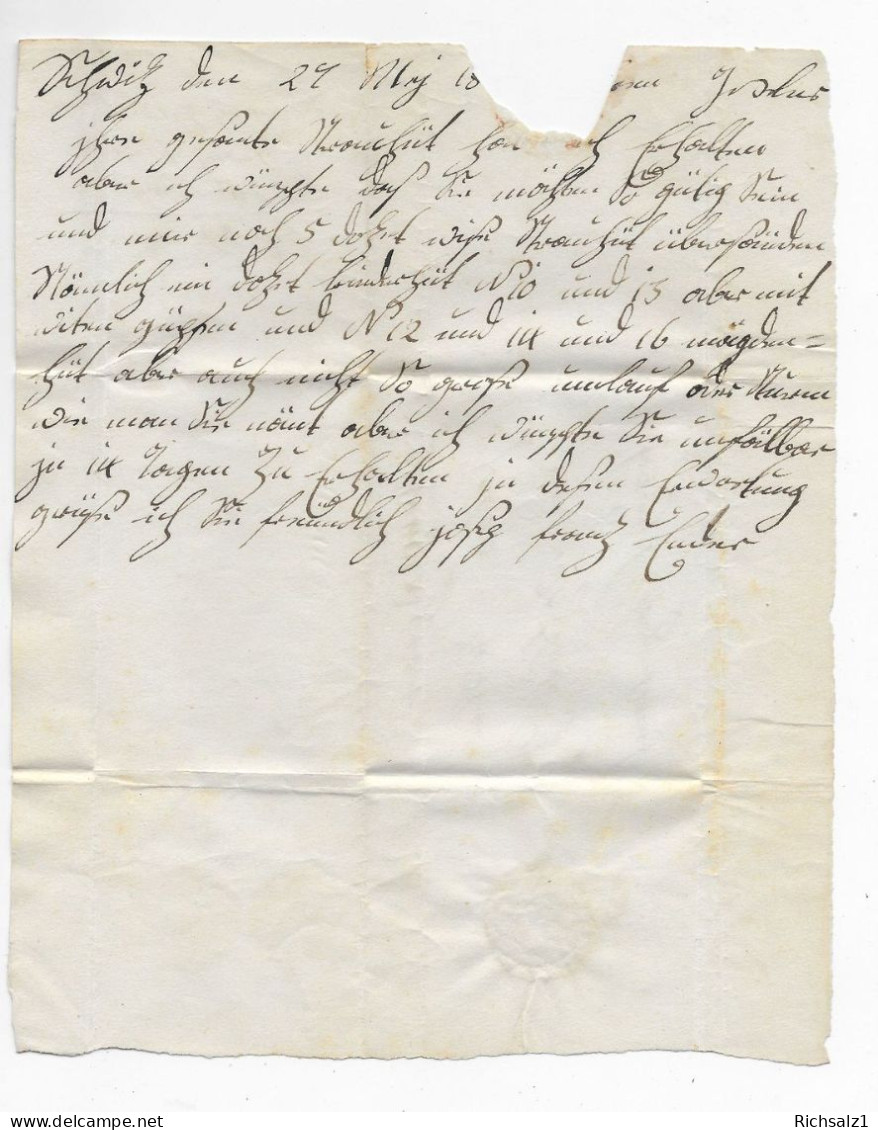 Schwitz den 27 Mej 18
ihre gesante Strauhüt hab ich Erhalten
aber ich wünschte daß Sie möchten So gütig Sein
und mir noch 5 dozet wiße Strauhüt übersänden
Nämlich ein dozet kinderhüt No 10 und 13 aber mit
witen güpfen und No 12 und 14 und 16 mägden=
hüt aber auch nicht So große umlauf oder Sturm
wie man Sie nänt aber ich wünschte Sie unfälbar
in 14 Tagen Zu Erhalten in deßen Erwartung
grüße ich Sie freundlich Franz
delcampe.net
Richsalz1